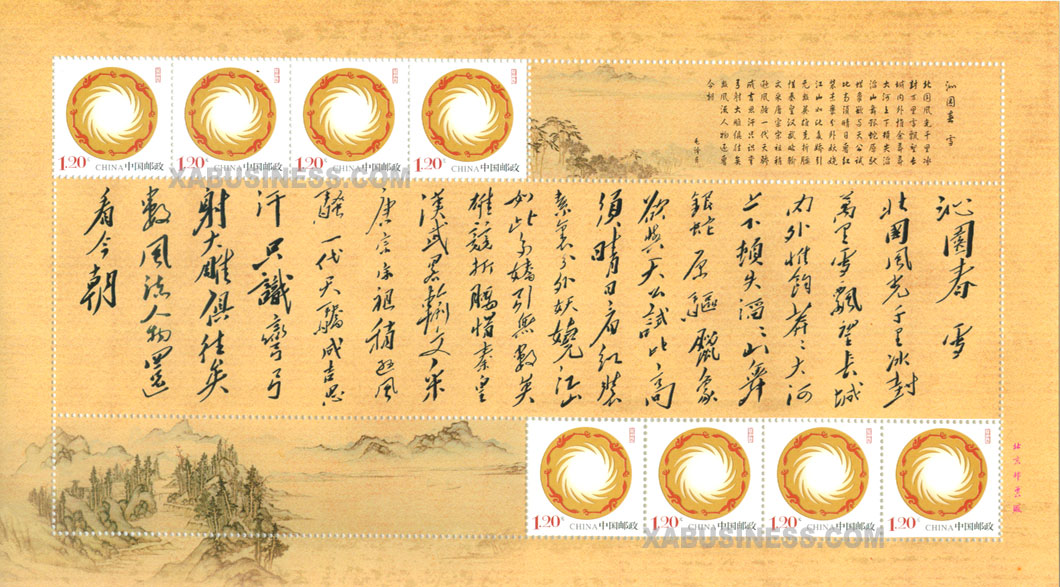 1.20元
CHINA中国邮政
1.20元
CHINA中国邮政
1.20元
CHINA中国邮政
1.20元
CHINA中国邮政
沁園春 雪
北國風光千里冰
封萬里雪飄望長
城内外惟餘莽莽
大河上下頓失滔
滔山舞銀蛇原馳
蠟象欲與天公試
比高須晴日看紅
裝素裹分外妖嬈
江山如此多嬌引
無數英雄競折腰
惜秦皇漢武略輸
文采唐宗宋祖稍
遜風騷一代天驕
成吉思汗只識彎
弓射大雕俱往矣
數風流人物還看
今朝
XABUSINESS.COM
沁園春 雪
北國風光千里冰封
萬里雪飄望長城
内外惟餘莽〻大河
上下頓失滔〻山舞
銀蛇原驅臘象
欲與天公試比高
須晴日看紅裝
素裹分外妖嬈江山
如此多嬌引無數英
雄競折腰惜秦皇
漢武略輸文采
唐宗宋祖稍遜風
騷一代天驕成吉思
汗只識彎弓
射大雕俱往矣
數風流人物還
看今朝
1.20元
CHINA中国邮政
1.20元
CHINA中国邮政
1.20元
CHINA中国邮政
1.20元
CHINA中国邮政
北京邮票厂
XABUSINESS.COM